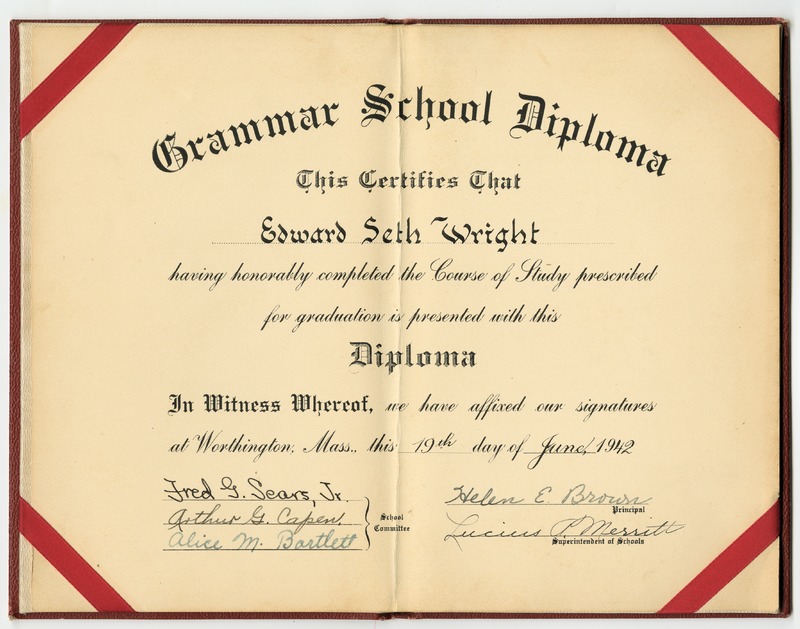 Grammar School Diploma
This Certifies That
Edward Seth Wright
having honorably completed the Course of Study prescribed
for graduation is presented with this
Diploma
In Witness Whereof, we have affixed our signatures
at Worthington, Mass., this 19th day of June, 1942
Fred G. Sears, Jr.
Arthur G. Capen.
Alice M. Bartlett
School
Committee
Helen E. Brown
Principal
Lucius P. Merritt
Superintendent of Schools